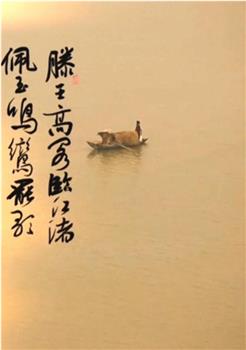 滕王高阁临江渚
佩玉鸣鸾罢歌